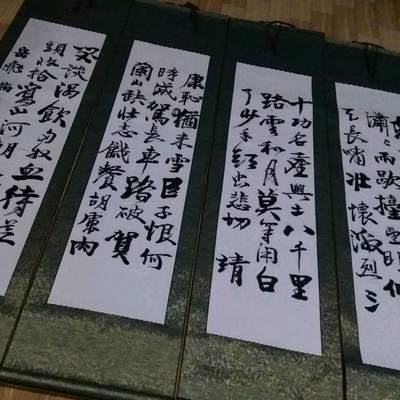 瀟瀟雨歇擡望眼仰
天長嘯壯懷激烈三
十功名塵與土八千里
路雲和月莫等閑白
了少年頭空悲切 靖
康恥猶未雪臣子恨何
時滅駕長車踏破賀
蘭山缺壯志飢餐胡虜肉
笑談渴飲匈奴血待從
頭收拾舊山河朝
岳飛